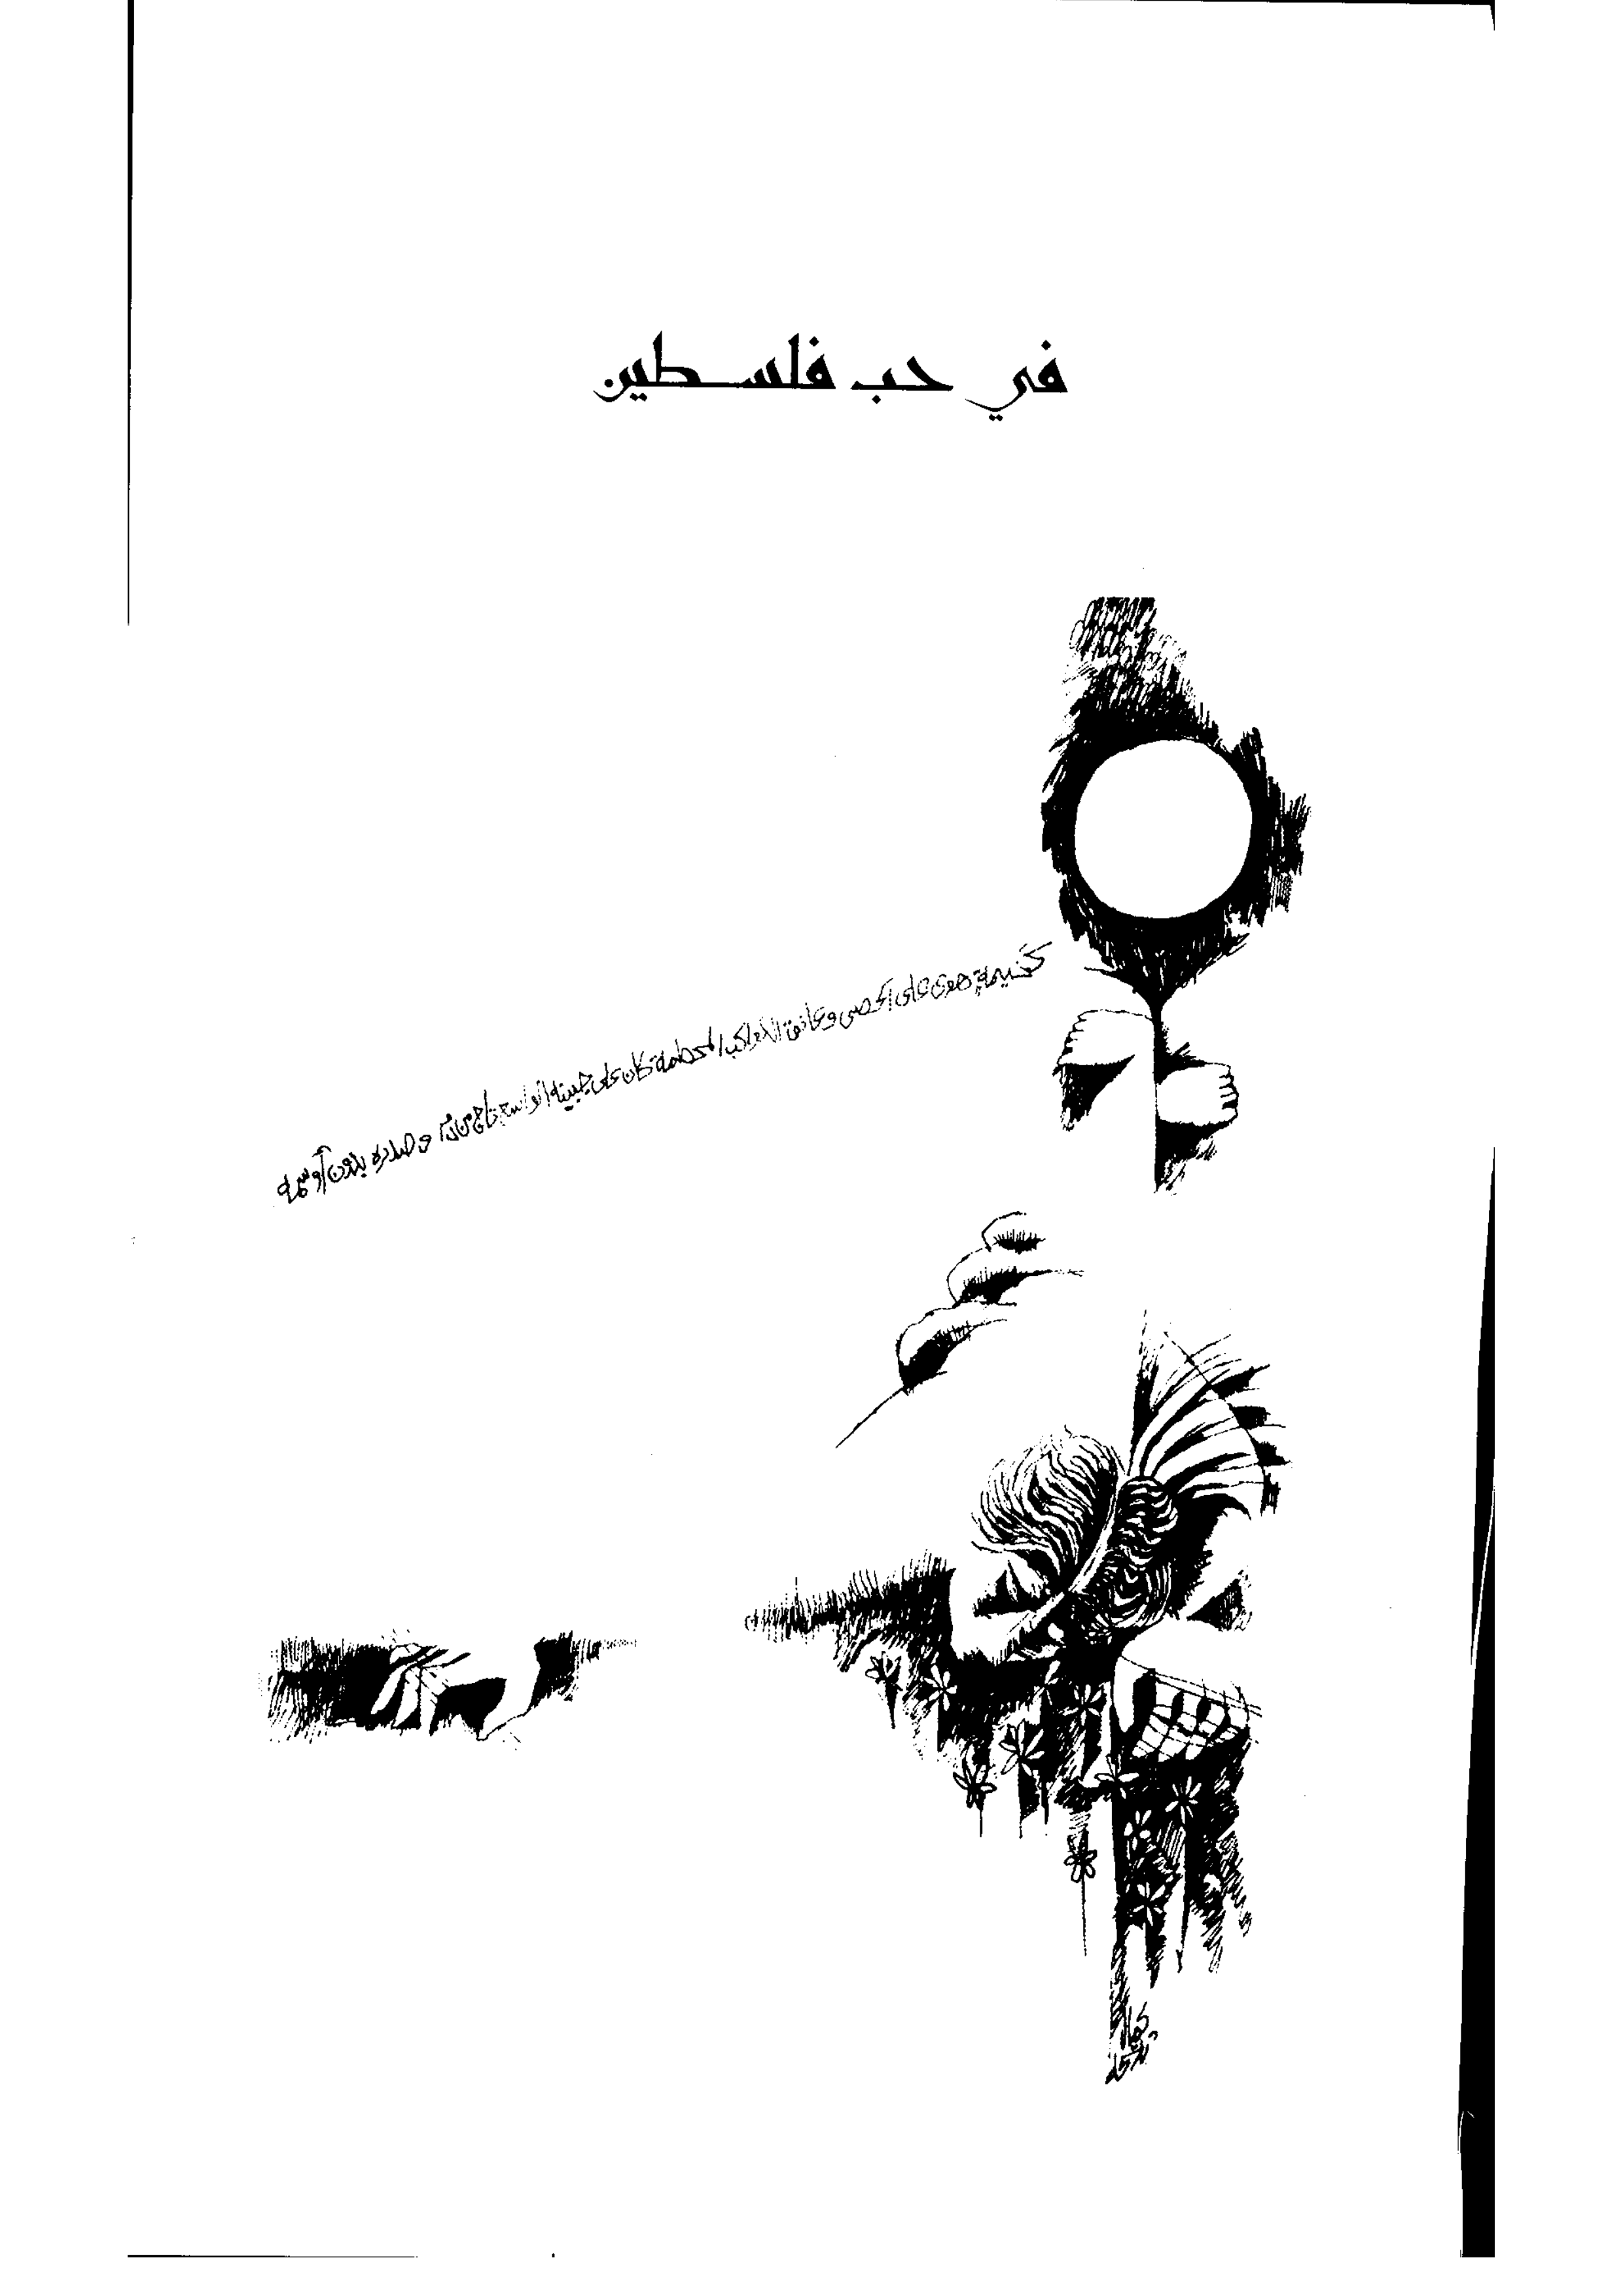 في حب فلسطين
كخيمة هوى على الحصى وعانق الكواكب المحطمة كان على جبينه الواسع تاج من دم و صدره بدون أوسمه
كمال